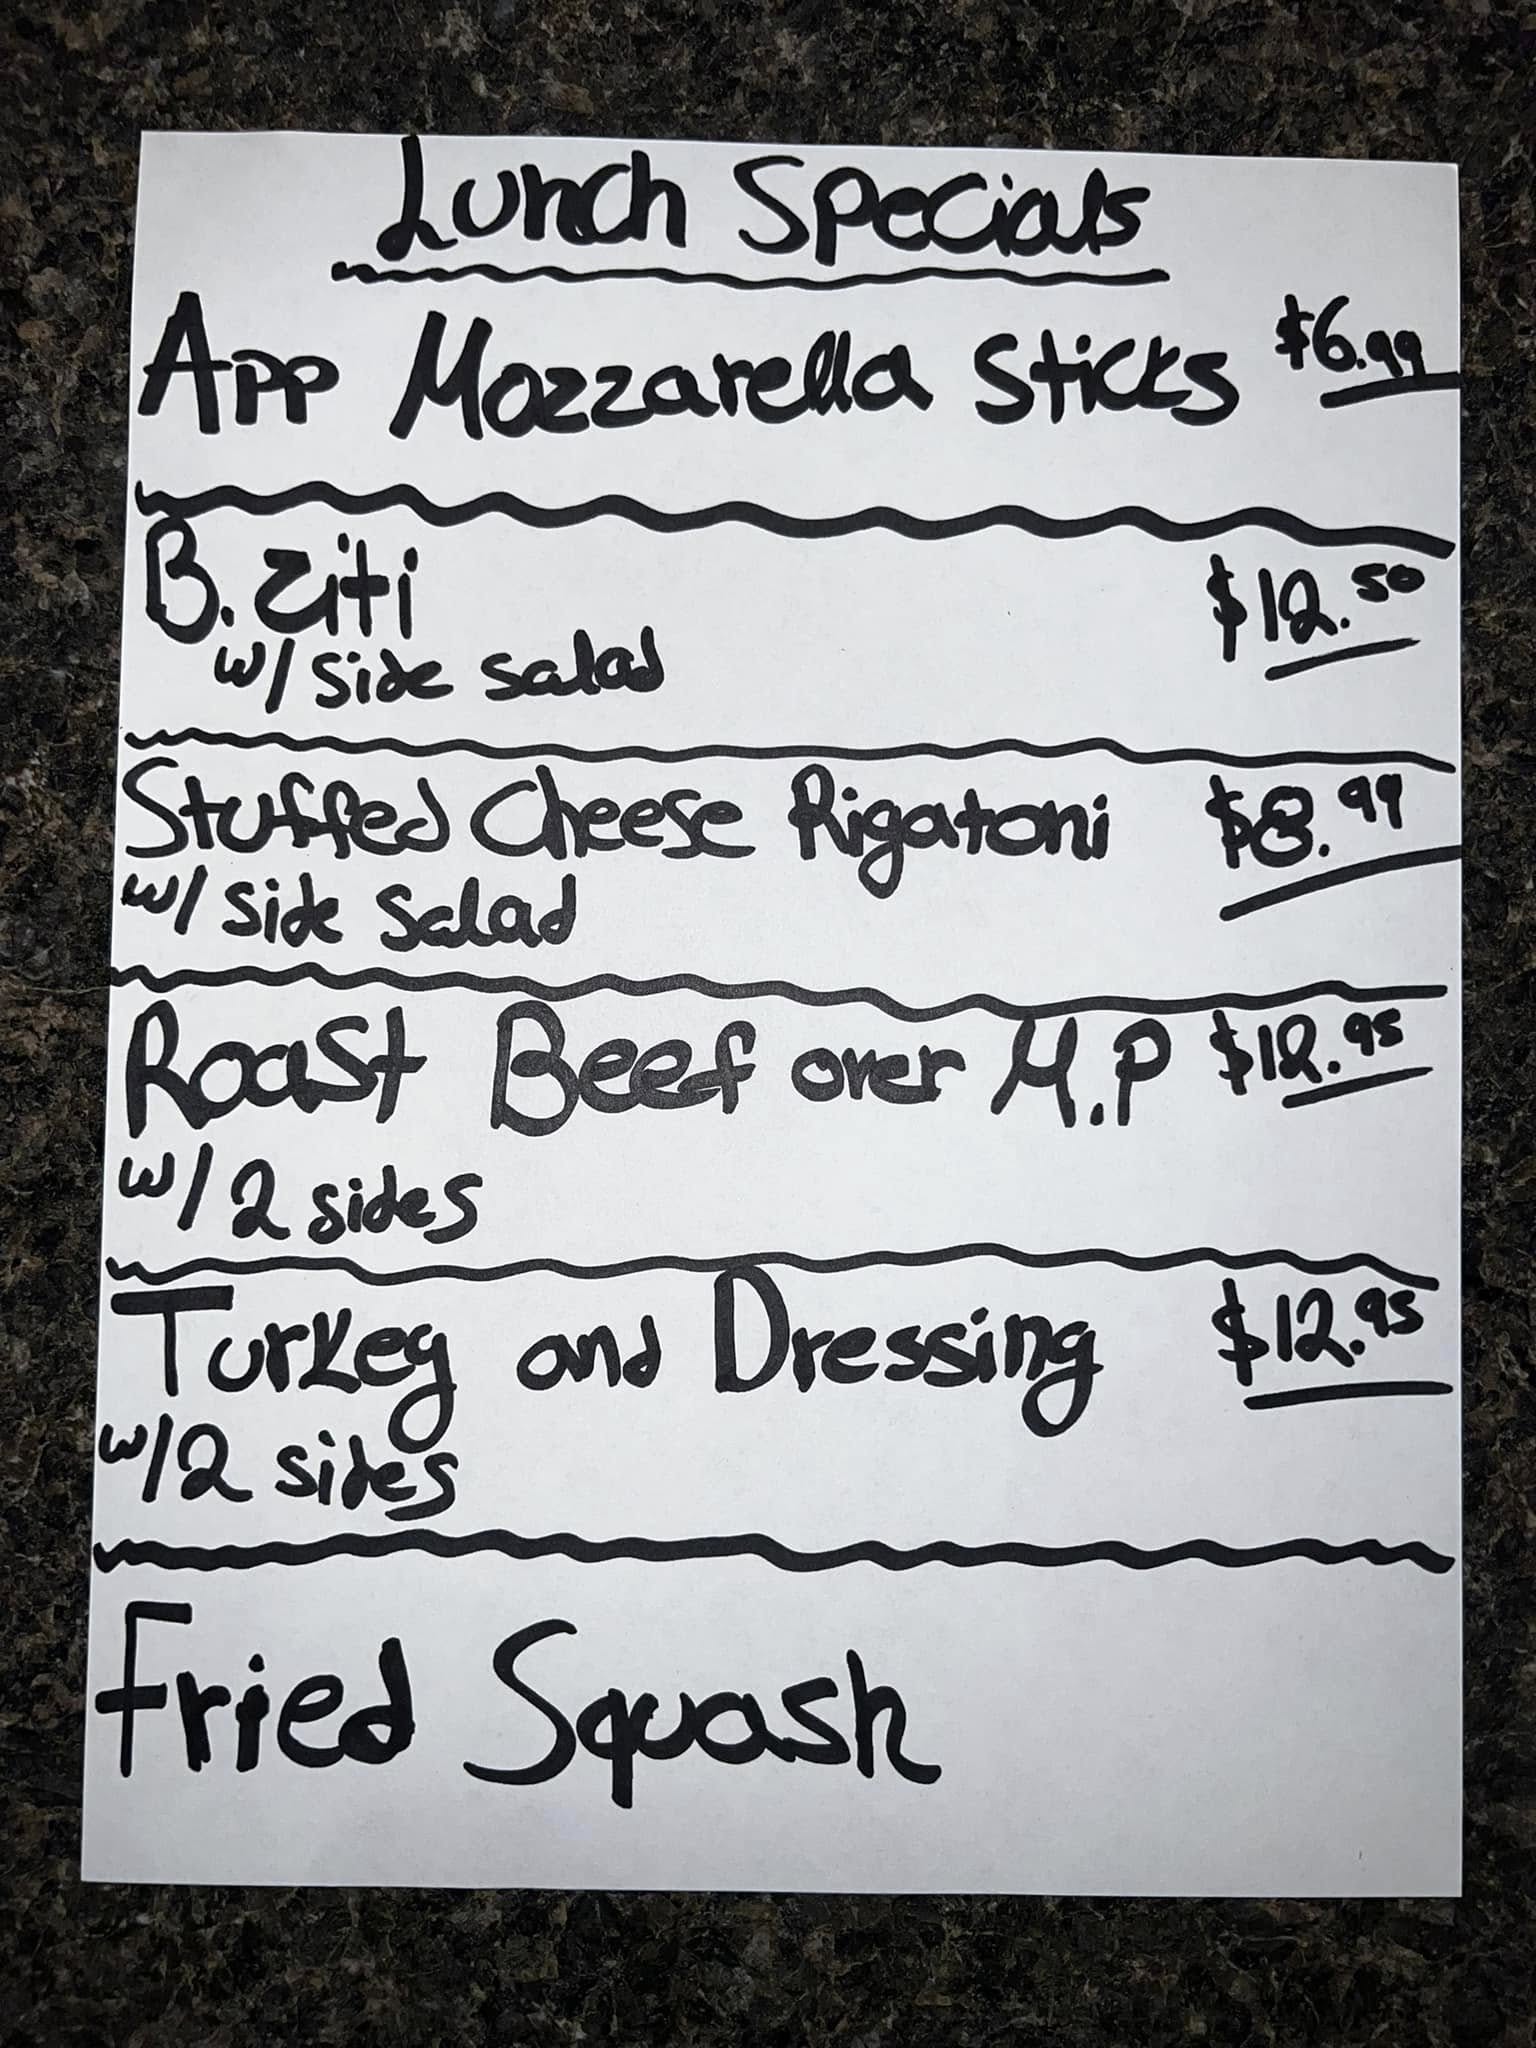 Lunch Specials
App Mozzarella Sticks $6.99
B. Ziti $12.50
w/ side salad
Stuffed Cheese Rigatoni $8.99
w/ side salad
Roast Beef over M.P $12.95
w/ 2 sides
Turkey and Dressing $12.95
w/2 sides
Fried Squash